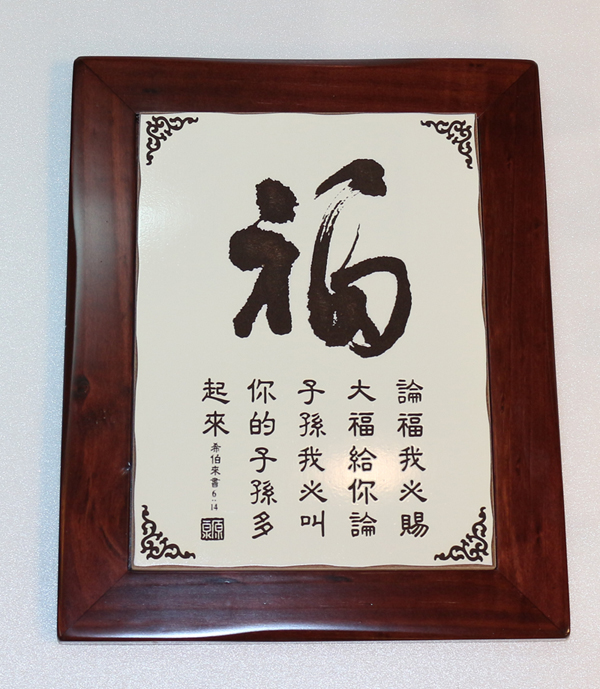 福
論福我必賜
大福給你論
子孫我必叫
你的子孫多
起來
希伯來書6:14